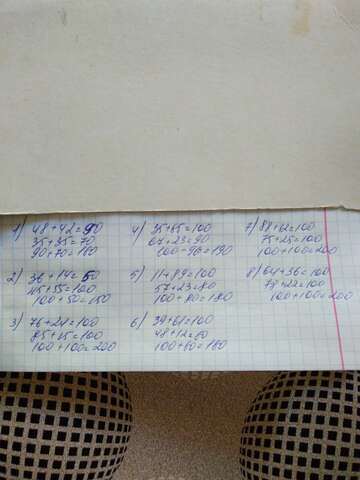 1) 48+42=90
35+35=70
90+70=160
2) 36+14=50
45+55=100
100+50=150
3) 76+24=100
85+15=100
100+100=200
4) 35+65=100
67+23=90
100+90=190
5) 11+89=100
57+23=80
100+80=180
6) 39+61=100
48+12=60
100+60=160
7) 88+12=100
75+25=100
100+100=200
8) 64+36=100
78+22=100
100+100=200